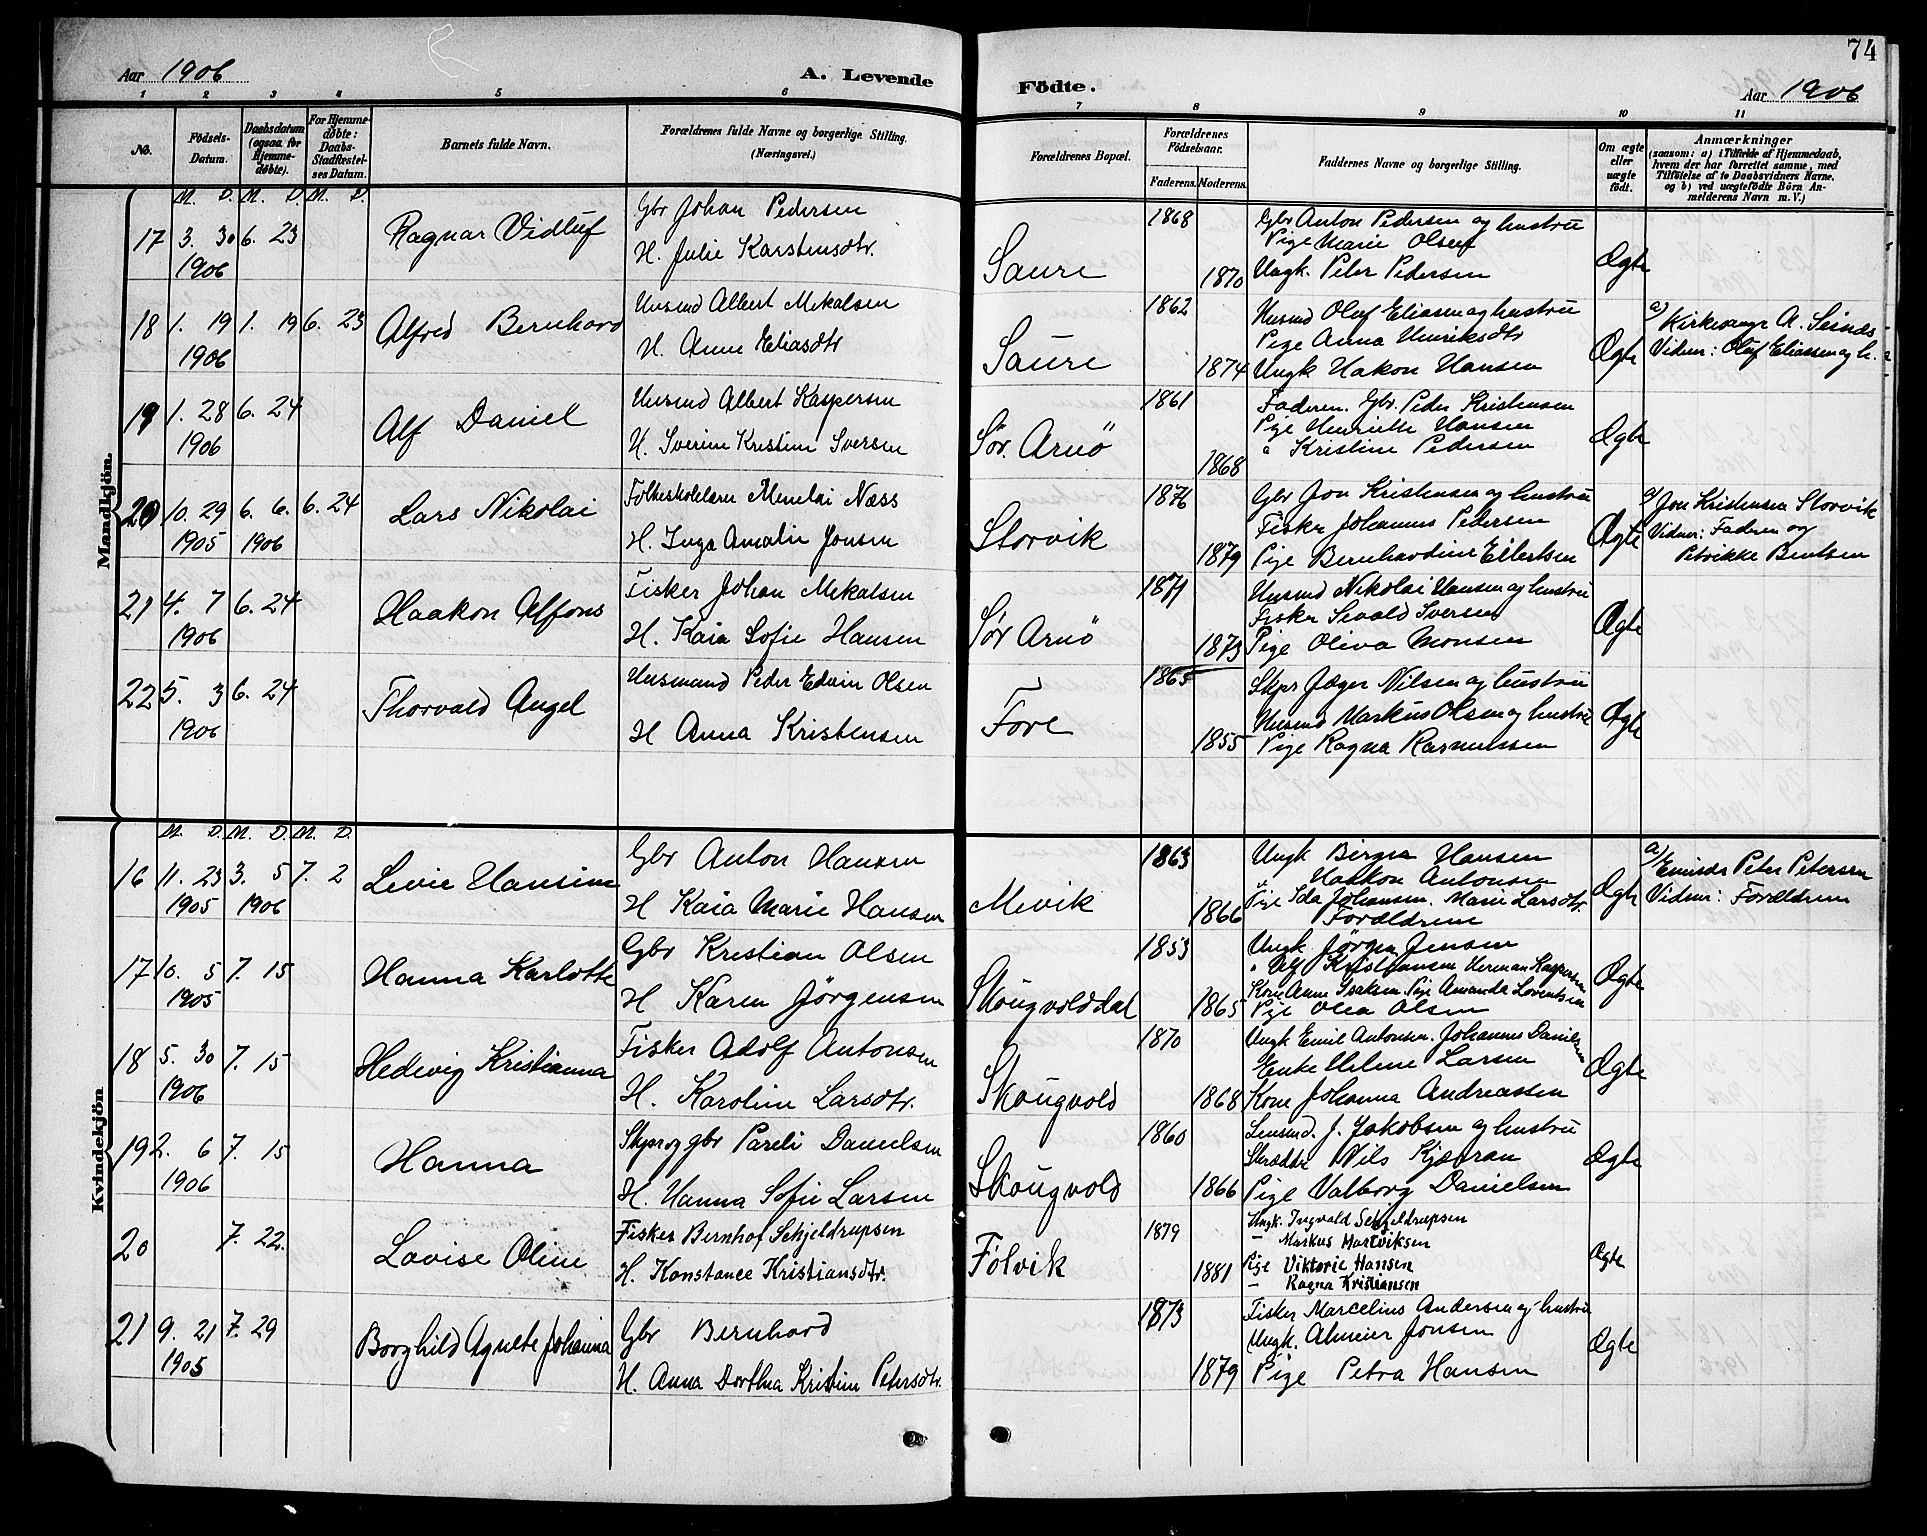 74
Aar 1906
A. Levende
Födte.
Aar 1906
1 2 3 4 5 6 7 8 9 10 11
No.
Födsels-Datum.
Daabsdatum (ogsaa for Hjemme-döbte).
For Hjemme-döbte: Daabs-Stadfæstel-ses Datum.
Barnets fulde Navn.
Forældrenes fulde Navne og borgerlige Stilling.
(Næringsvei.)
Forældrenes Bopæl.
Forældrenes Födselsaar.
Faderens. Moderens.
Faddernes Navne og borgerlige Stilling.
Om ægte eller uægte födt.
Anmærkninger
(saasom: a) i Tilfælde af Hjemmedaab, hvem der har forrettet samme, med Tilföielse af to Daabsvidners Navne, og b) ved uægtefödte Börn Anmelderens Navn m. V.)
Mandkjön.
M. D. M. D. M. D.
17 3. 30 6. 23 Ragnar Vidluf Gbr Johan Pedersen 1868 Gbr Anton Pedersen og hustru
Pige Marie Olsen
1906 H. Julie Karstensdtr. Saure 1870 Ungk. Peter Pedersen Ægte
18 1. 19 1. 19 6. 23 Alfred Bernhard Husmd Albert Mikalsen 1862 Husmd Oluf Eliasen og hustru a) Kirkesanger A. Seines
Pige Anna Henriksdtr
1906 H. Anne Eliasdtr Saure 1874 Ungk Hakon Hansen Ægte Vidner: Oluf Eliassen og h.
19 1. 28 6. 24 Alf Daniel Husmd Albert Kaspersen 1861 Faderen. Gbr. Peder Kristensen
Pige Henriette Hansen
1906 H. Sverine Kristine Iversen Sör. Arnö 1868 " Kristine Pedersen Ægte
20 10. 29 6. 6. 6. 24 Lars Nikolai Folkeskolelærer Menelai Næss 1876 Gbr Jon Kristensen og hustru a) Jon Kristensen Storvik
Fisker Johannes Pedersen Vidner: Faderen og
1905 1906 H. Inga Amalie Jonsen Storvik 1879 Pige Bernhardine Eilertsen Ægte Petrikke Bentsen
21 4. 7 6. 24 Haakon Alfons Fisker Johan Mikalsen 1871 Husmd Nikolai Hansen og hustru
Fisker Sivald Iversen
1906 H. Kaia Sofie Hansen Sör Arnö 1873 Pige Oliva Monsen Ægte
22 5. 3 6. 24 Thorvald Angel Husmand Peder Edvin Olsen 1865 Skpr Jæger Nilsen og hustru
Husmd Markus Olsen og hustru
1906 H Anna Kristensen Fore 1855 Pige Ragna Rasmussen Ægte
Kvindekjön
M. D. M. D. M. D.
16 11. 23 3. 5 7. 2 Levie Hansine Gbr Anton Hansen 1863 Ungk Birger Hansen a) Emisær Peter Petersen
" Haakon Antonsen
1905 1906 H Kaia Marie Hansen Mevik 1866 Pige Ida Johansen. Marie Larsdtr. Ægte Vidner: Forældrene
Forældrene
17 10. 5 7. 15 Hanna Karlotte Gbr Kristian Olsen 1853 Ungk Jörgen Jensen
" Ulf Kristiansen Herman Kaspersen
Kone Anne Isaksen Pige Amanda Lorentsen
1905 H Karen Jörgensen Skougvolddal 1865 Pige Olea Olsen Ægte
18 5. 30 7. 15 Hedevig Kristianna Fisker Adolf Antonsen 1870 Ungk Emil Antonsen. Johannes Danielsen
Enke Helene Larsen
1906 H. Karoline Larsdtr. Skougvold 1868 Kone Johanna Andreassen Ægte
19 2. 6 7. 15 Hanna Skpr og gbr Pareli Danielsen 1860 Lensmd. J. Jakobsen og hustru
Skrædder Nils Kjærran
1906 H. Hanna Sofie Larsen Skougvold 1866 Pige Valborg Danielsen Ægte
20 7. 22. Lovise Oline Fisker Bernhof Schjeldrupsen 1879 Ungk. Ingvald Schjeldrupsen
— Markus Martviksen
H. Konstance Kristiansdtr. Fölvik 1881 Pige Viktorie Hansen Ægte
— Ragna Kristiansen
21 9. 21 7. 29 Borghild Agnete Johanna Gbr Bernhard 1873 Fisker Marcelius Andersen og hustru
Ungk. Almeier Jonsen
1905 H. Anna Dorthea Kristine Petersdtr. 1879 Pige Petra Hansen Ægte